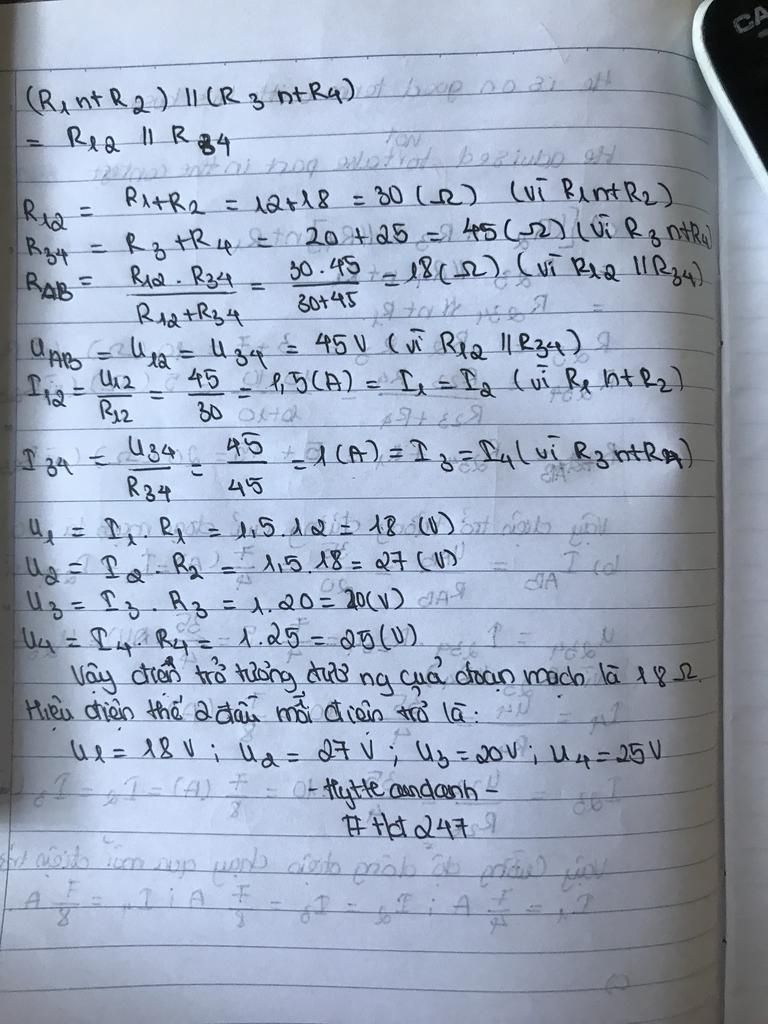 (R1 nt R2) // (R3 nt R4)
= R12 // R34
R12 = R1+R2 = 12+18 = 30 (Ω) (vì R1 nt R2)
R34 = R3 + R4 = 20 + 25 = 45 (Ω) (vì R3 nt R4)
RAB = R12 . R34 / R12 + R34 = 30 . 45 / 30+45 = 18 (Ω) (vì R12 // R34)
UAB = U12 = U34 = 45 V (vì R12 // R34)
I12 = U12 / R12 = 45 / 30 = 1,5 (A) = I1 = I2 (vì R1 nt R2)
I34 = U34 / R34 = 45 / 45 = 1 (A) = I3 = I4 (vì R3 nt R4)
U1 = I1 . R1 = 1,5 . 12 = 18 (V)
U2 = I2 . R2 = 1,5 . 18 = 27 (V)
U3 = I3 . R3 = 1 . 20 = 20 (V)
U4 = I4 . R4 = 1 . 25 = 25 (V)
Vậy điện trở tương đương của đoạn mạch là 18 Ω.
Hiệu điện thế 2 đầu mỗi điện trở là:
U1 = 18 V ; U2 = 27 V ; U3 = 20V ; U4 = 25V
247
CA